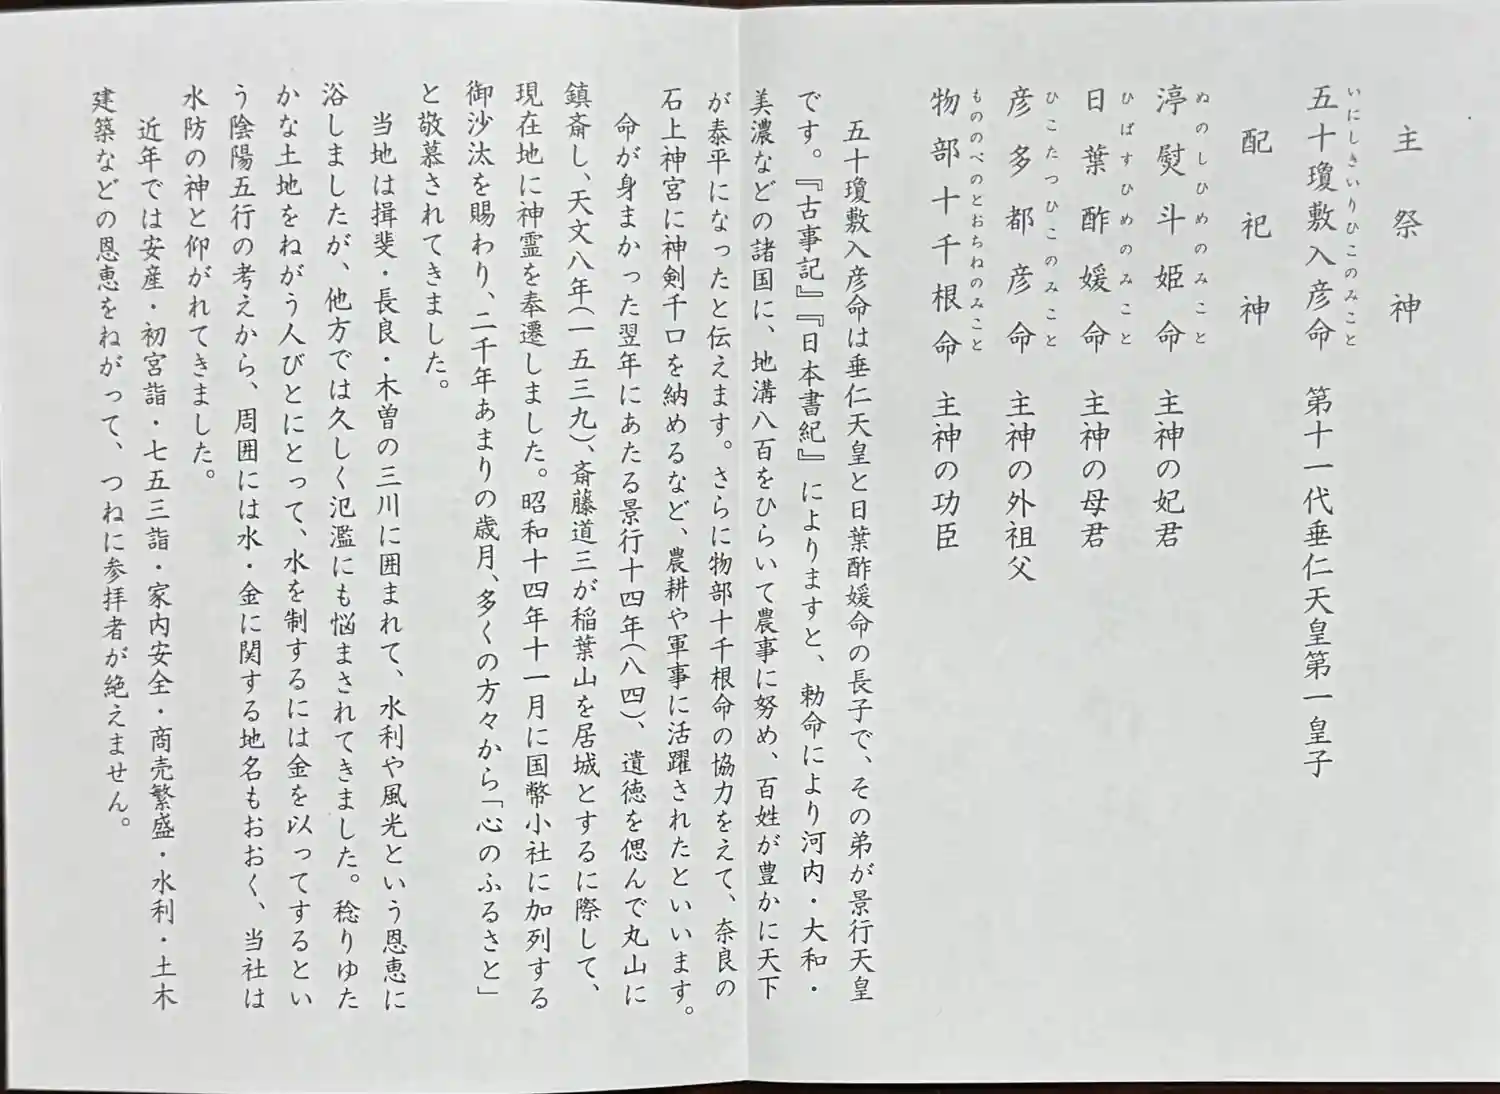 主祭神
五十瓊敷入彦命 第十一代垂仁天皇第一皇子
いにしきいりひこのみこと
配祀神
渟熨斗姫命 主神の妃君
ぬのしひめのみこと
日葉酢媛命 主神の母君
ひばすひめのみこと
彦多都彦命 主神の外祖父
ひこたつひこのみこと
物部十千根命 主神の功臣
もののべのとおちねのみこと
五十瓊敷入彦命は垂仁天皇と日葉酢媛命の長子で、その弟が景行天皇
です。『古事記』『日本書紀』によりますと、勅命により河内・大和・
美濃などの諸国に、地溝八百をひらいて農事に努め、百姓が豊かに天下
が泰平になったと伝えます。さらに物部十千根命の協力をえて、奈良の
石上神宮に神剣千口を納めるなど、農耕や軍事に活躍されたといいます。
命が身まかった翌年にあたる景行十四年(八四)、遺徳を偲んで丸山に
鎮斎し、天文八年(一五三九)、斎藤道三が稲葉山を居城とするに際して、
現在地に神霊を奉遷しました。昭和十四年十一月に国幣小社に加列する
御沙汰を賜わり、二千年あまりの歳月、多くの方々から「心のふるさと」
と敬慕されてきました。
当地は揖斐・長良・木曽の三川に囲まれて、水利や風光という恩恵に
浴しましたが、他方では久しく氾濫にも悩まされてきました。稔りゆた
かな土地をねがう人びとにとって、水を制するには金を以ってするとい
う陰陽五行の考えから、周囲には水・金に関する地名もおおく、当社は
水防の神と仰がれてきました。
近年では安産・初宮詣・七五三詣・家内安全・商売繁盛・水利・土木
建築などの恩恵をねがって、つねに参拝者が絶えません。